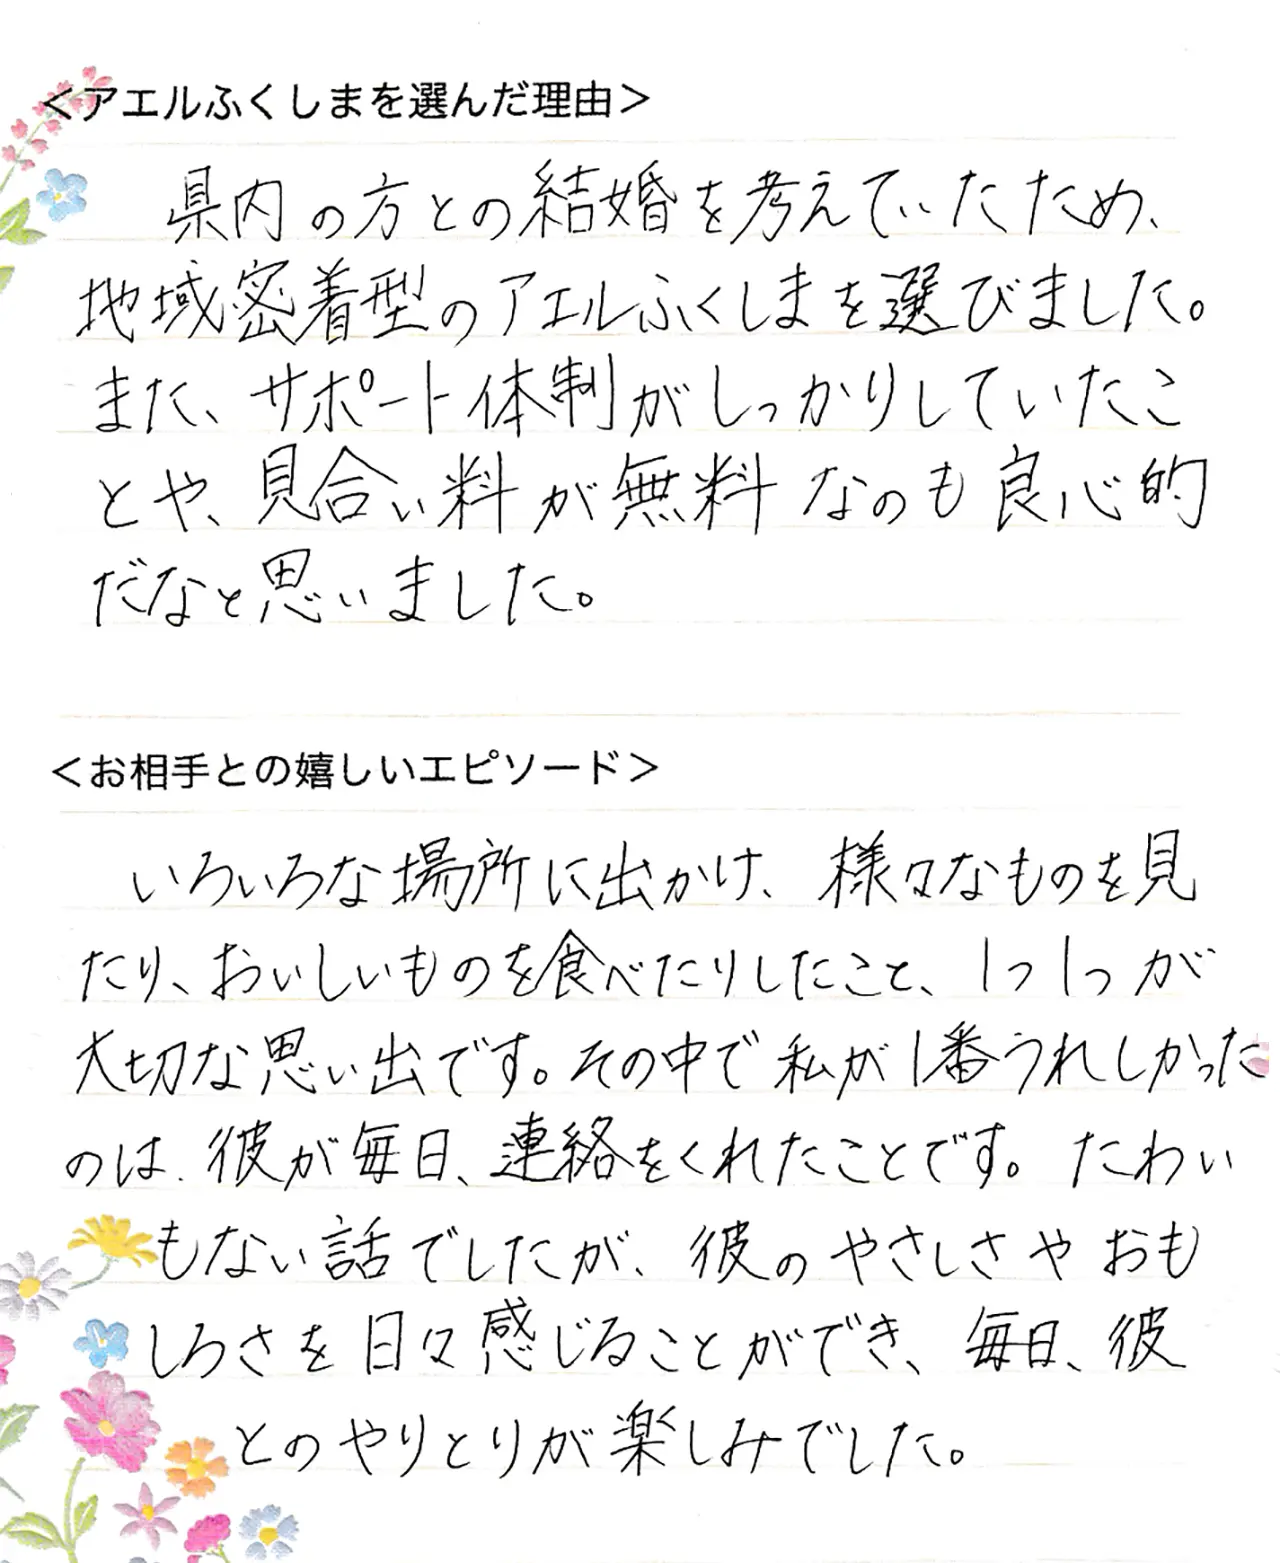 ＜アエルふくしまを選んだ理由＞
県内の方との結婚を考えていたため、
地域密着型のアエルふくしまを選びました。
また、サポート体制がしっかりしていたこ
とや、見合い料が無料なのも良心的
だなと思いました。
＜お相手との嬉しいエピソード＞
いろいろな場所に出かけ、様々なものを見
たり、おいしいものを食べたりしたこと、1つ1つが
大切な思い出です。その中で私が1番うれしかった
のは、彼が毎日、連絡をくれたことです。たわい
もない話でしたが、彼のやさしさやおも
しろさを日々感じることができ、毎日、彼
とのやりとりが楽しみでした。